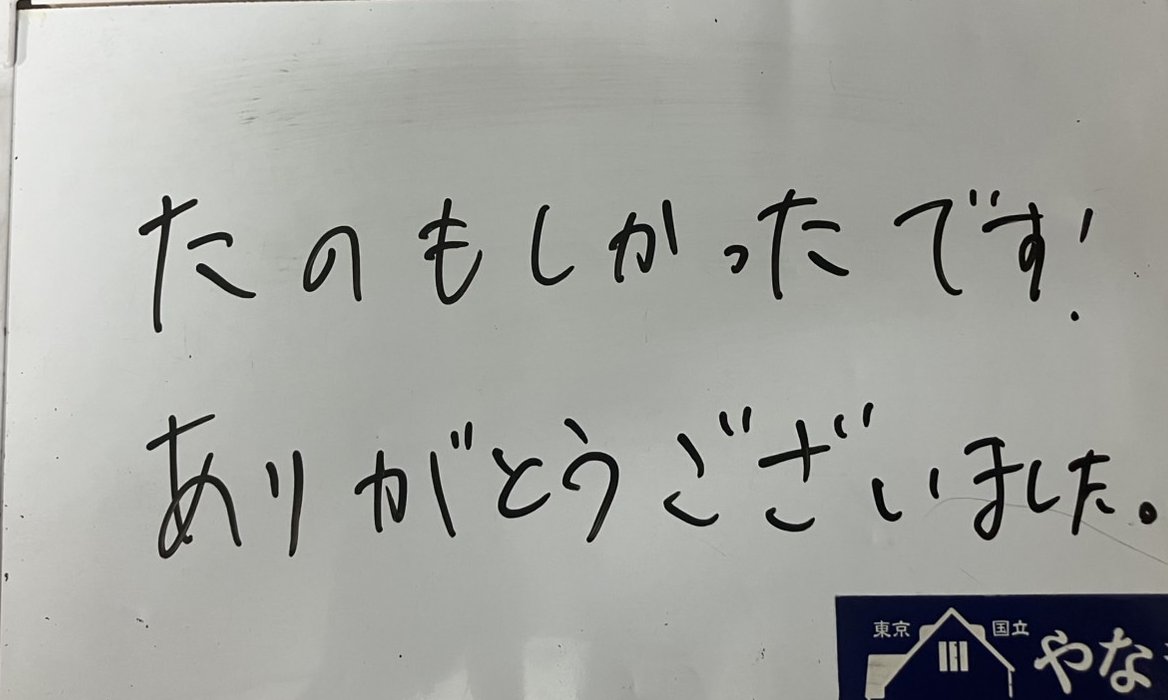 たのもしかったです!
ありがとうございました。
東京 国立
やな